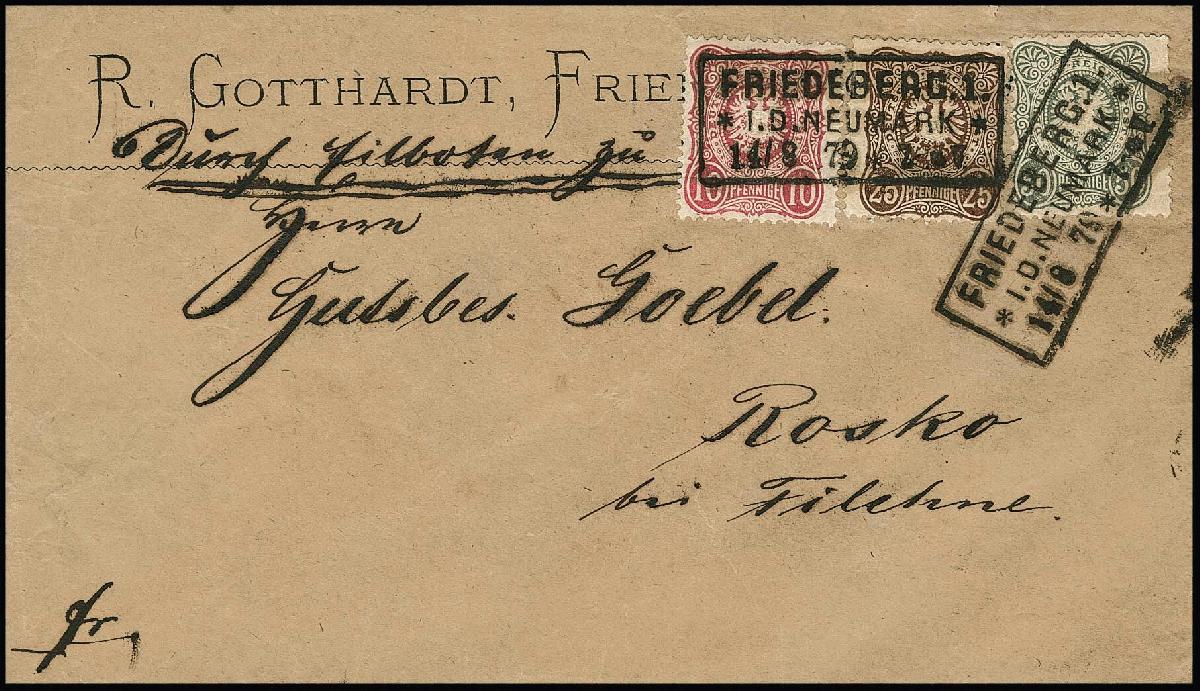 R. GOTTHARDT, FRIE
Durch Eilboten zu
Herrn
Gutsbes. Goebel.
Rosko
bei Filehne.
fr.
FRIEDEBERG.1.
* I.D.NEUMARK *
14/8 79
10 PFENNIGE 10
25 PFENNIGE 25
FRIEDEBERG.1.
* I.D.NEUMARK *
14/8 79